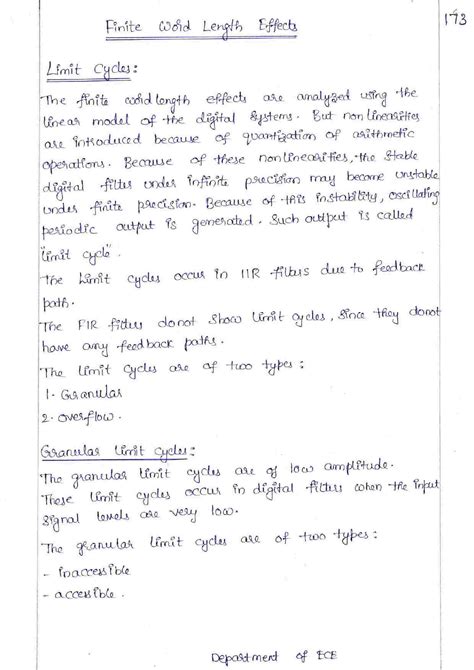 Finite Word Length Effects
173
Limit Cycles :
The finite wordlength effects are analyzed using the
linear model of the digital systems. But nonlinearities
are introduced because of quantization of arithmetic
operations. Because of these nonlinearities, the stable
digital filter under infinite precision may become unstable
under finite precision. Because of this instability, oscillating
periodic output is generated. Such output is called
"limit cycle".
The limit cycles occur in IIR filters due to feedback
path.
The FIR filters donot show limit cycles, since they donot
have any feedback paths.
The limit cycles are of two types :
1. Granular
2. overflow.
Granular limit cycles :
The granular limit cycles are of low amplitude.
These limit cycles occur in digital filters when the input
signal levels are very low.
The granular limit cycles are of two types :
- inaccessible
- accessible.
Department of ECE